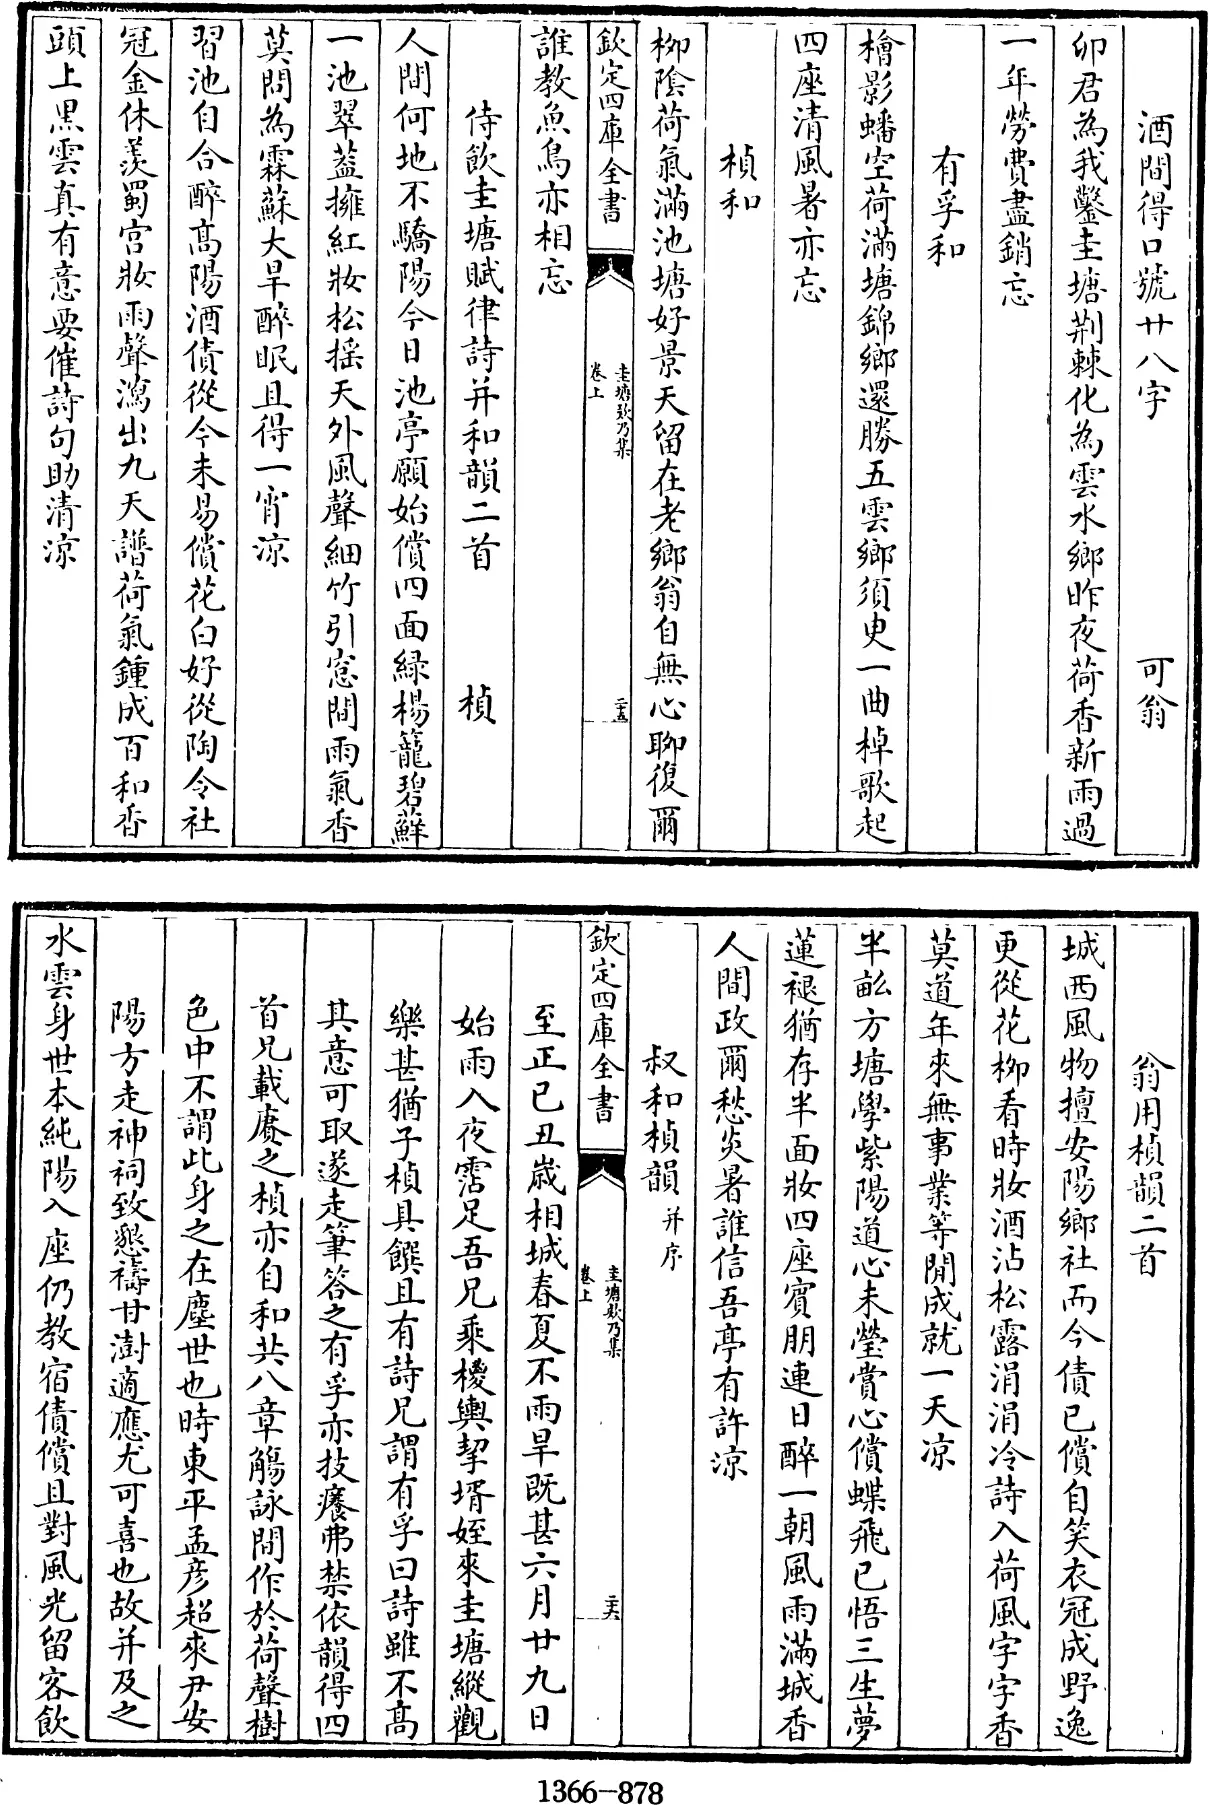 酒間得口號廿八字 可翁
卯君為我鑿圭塘荆棘化為雲水鄉昨夜荷香新雨過
一年勞費盡銷忘
有孚和
檜影蟠空荷滿塘錦鄉還勝五雲鄉須臾一曲棹歌起
四座清風暑亦忘
楨和
柳陰荷氣滿池塘好景天留在老鄉翁自無心聊復爾
欽定四庫全書
圭塘欸乃集
卷上
二十五
誰教魚鳥亦相忘
侍飲圭塘賦律詩并和韻二首 楨
人間何地不驕陽今日池亭願始償四面緑楊籠碧蘚
一池翠葢擁紅妝松揺天外風聲細竹引窓間雨氣香
莫問為霖蘇大旱醉眠且得一宵涼
習池自合醉髙陽酒債從今未易償花白好從陶令社
冠金休羨蜀宫妝雨聲瀉出九天譜荷氣鍾成百和香
頭上黒雲真有意要催詩句助清涼
翁用楨韻二首
城西風物擅安陽鄉社而今債已償自笑衣冠成野逸
更從花柳看時妝酒沾松露涓涓冷詩入荷風字字香
莫道年來無事業等閒成就一天凉
半畝方塘學紫陽道心未瑩賞心償蝶飛已悟三生夢
蓮褪猶存半面妝四座賓朋連日醉一朝風雨滿城香
人間政爾愁炎暑誰信吾亭有許涼
叔和楨韻并序
欽定四庫全書
圭塘欸乃集
卷上
二十六
至正己丑歲相城春夏不雨旱既甚六月廿九日
始雨入夜霑足吾兄乘櫌輿挈壻姪來圭塘縱觀
樂甚猶子楨具饌且有詩兄謂有孚曰詩雖不髙
其意可取遂走筆答之有孚亦技癢弗禁依韻得四
首兄載賡之楨亦自和共八章觴詠間作於荷聲樹
色中不謂此身之在塵世也時東平孟彦超來尹安
陽方走神祠致懇禱甘澍適應尤可喜也故并及之
水雲身世本純陽入座仍教宿債償且對風光留客飲
1366-878